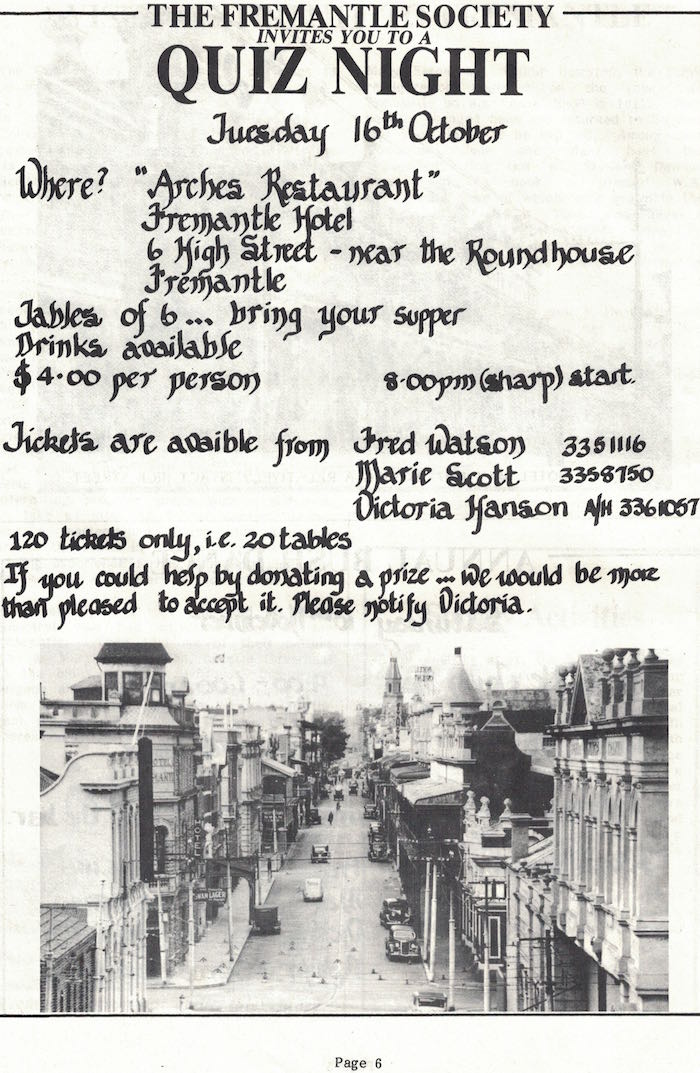 THE FREMANTLE SOCIETY
INVITES YOU TO A
QUIZ NIGHT
Tuesday 16th October
Where? "Arches Restaurant"
Fremantle Hotel
6 High Street - near the Roundhouse
Fremantle
Tables of 6... bring your supper
Drinks available
$4.00 per person 8.00pm (sharp) start.
Tickets are avaible from Fred Watson 3351116
Marie Scott 3358750
Victoria Hanson A/H 3361057
120 tickets only, i.e. 20 tables
If you could help by donating a prize ... we would be more
than pleased to accept it. Please notify Victoria.
SWAN LAGER
Page 6